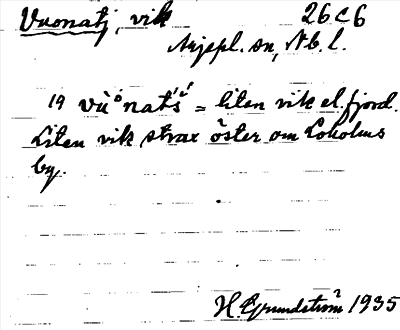 Vuonatj, vik 26 C 6
Arjepl. sn, Nb. l.
19 vù°nat´š´ = liten vik el. fjord.
Liten vik strax öster om Loholms
by.
H. Grundström 1935